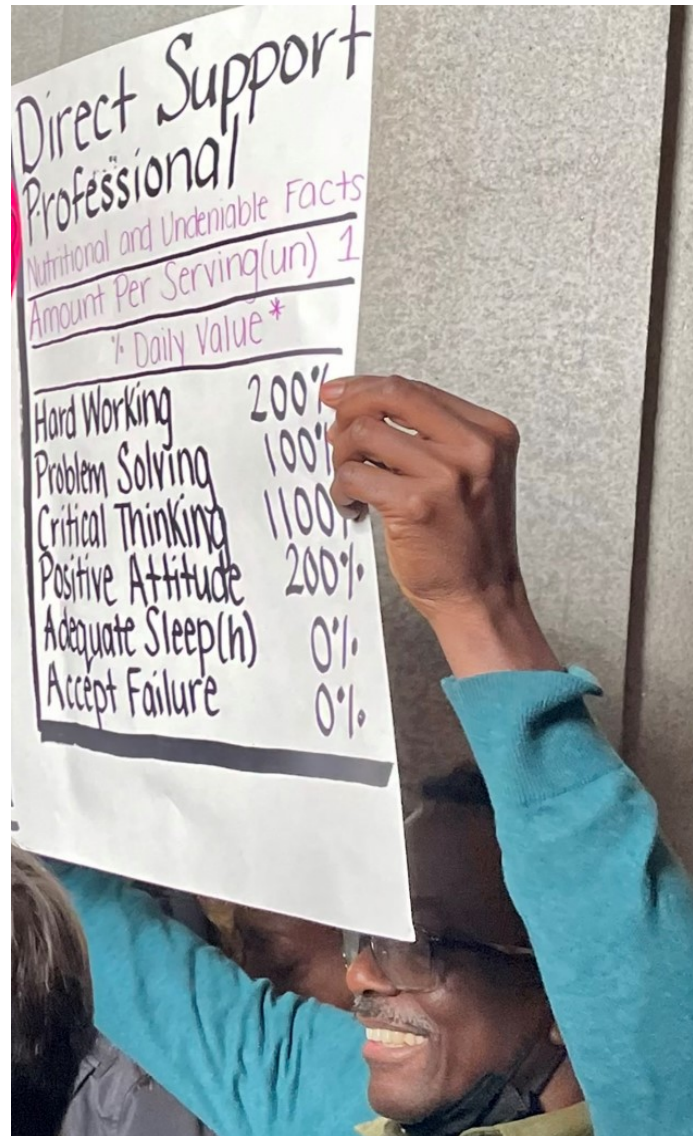 Direct Support
Professional
Nutritional and Undeniable Facts
Amount Per Serving(un) 1
% Daily Value*
Hard Working 200%
Problem Solving 100%
Critical Thinking 1100%
Positive Attitude 200%
Adequate Sleep(h) 0%
Accept Failure 0%